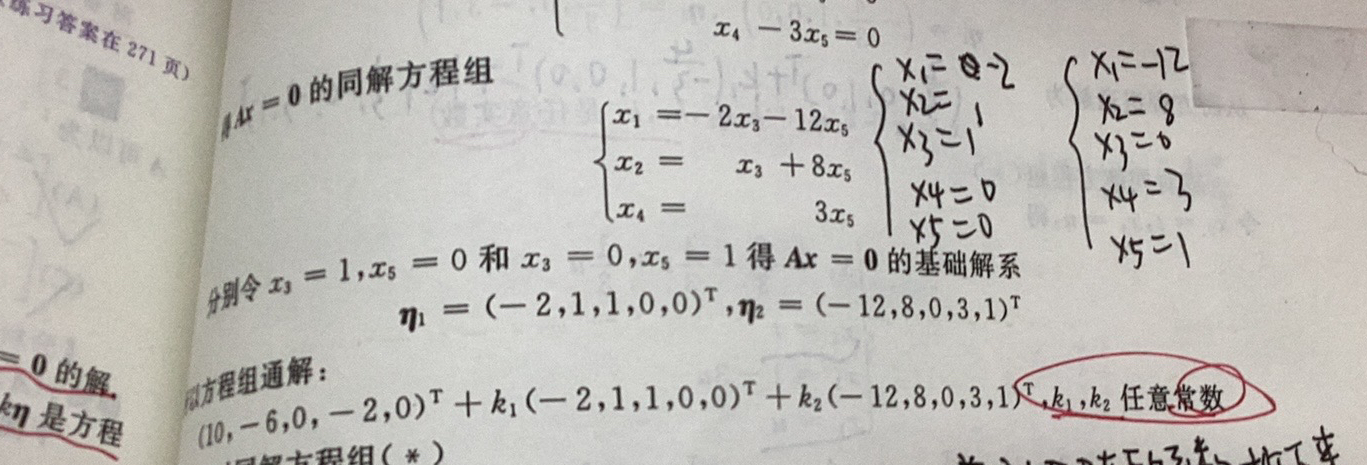 练习答案在 271 页)
x₄ − 3x₅ = 0
Ax = 0 的同解方程组
x₁ = − 2x₃ − 12x₅
x₂ = x₃ + 8x₅
x₄ = 3x₅
x₁ = -2
x2 = 1
x3 = 1
x4 = 0
x5 = 0
x₁ = -12
x2 = 8
x3 = 0
x4 = 3
x5 = 1
分别令 x₃ = 1, x₅ = 0 和 x₃ = 0, x₅ = 1 得 Ax = 0 的基础解系
η₁ = (− 2,1,1,0,0)ᵀ, η₂ = (− 12,8,0,3,1)ᵀ
= 0 的解.
kη 是方程
方程组通解:
(10, − 6,0, − 2,0)ᵀ + k₁(− 2,1,1,0,0)ᵀ + k₂(− 12,8,0,3,1)ᵀ, k₁, k₂ 任意常数
同解方程组(*)